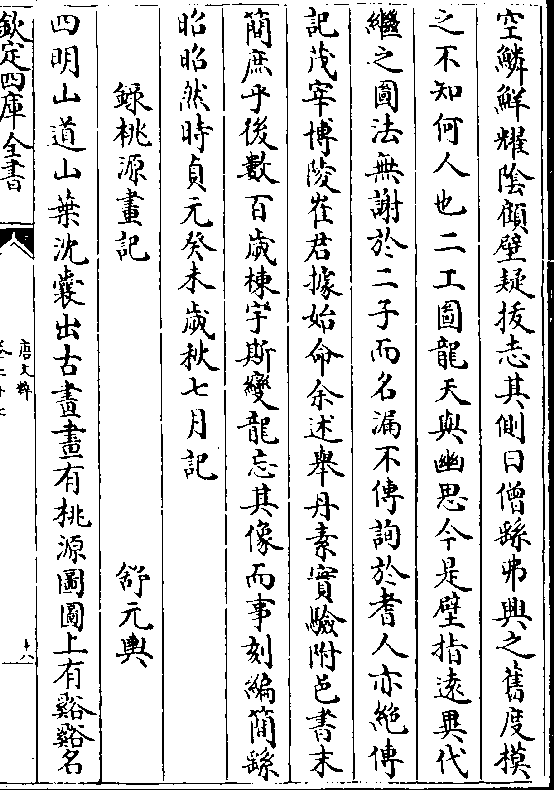 空鱗鮮耀陰顧壁疑拔志其側曰僧繇弗興之舊度模
之不知何人也二工圖龍天與幽思今是壁指遠異代
繼之圖法無謝於二子而名漏不傳詢於耆人亦絶傳
記茂宰博陵崔君據始命余述舉丹素實驗附邑書末
簡庶乎後數百歲棟宇斯變龍忘其像而事刻編簡繇
昭昭然時貞元癸未歲秋七月記
録桃源畫記
舒元輿
四明山道山葉沈囊出古畫畫有桃源圖圖上有谿谿名
欽定四庫全書
唐文粹
十八